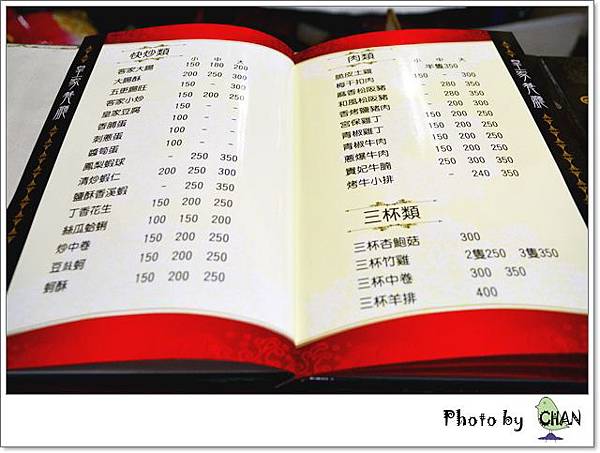 快炒類 小 中 大
客家大腸 150 180 200
大腸酥 200 250 300
五更腸旺 150 - 300
客家小炒 150 200 250
皇家豆腐 150 - -
香腩蛋 100 - -
刺蔥蛋 100 - -
醬筍蛋 100 - -
鳳梨蝦球 - 250 350
清炒蝦仁 200 250 300
鹽酥香溪蝦 - 250 350
丁香花生 150 200 250
絲瓜蛤蜊 100 150 200
炒中卷 150 200 250
豆豉蚵 150 200 250
蚵酥 150 200 250
肉類 小 中 大
脆皮土雞 半隻350
梅干扣肉 150 - 300
麻香松阪豬 - 280 350
和風松阪豬 - 280 350
香烤鹽豬肉 - 200 300
宮保雞丁 150 200 250
青椒雞丁 150 200 250
青椒牛肉 150 200 250
蔥爆牛肉 150 200 250
貴妃牛腩 250 300 350
烤牛小排 - 240 350
三杯類
三杯杏鮑菇 300
三杯竹雞 2隻250 3隻350
三杯中卷 300 350
三杯羊排 400
Photo by CHAN